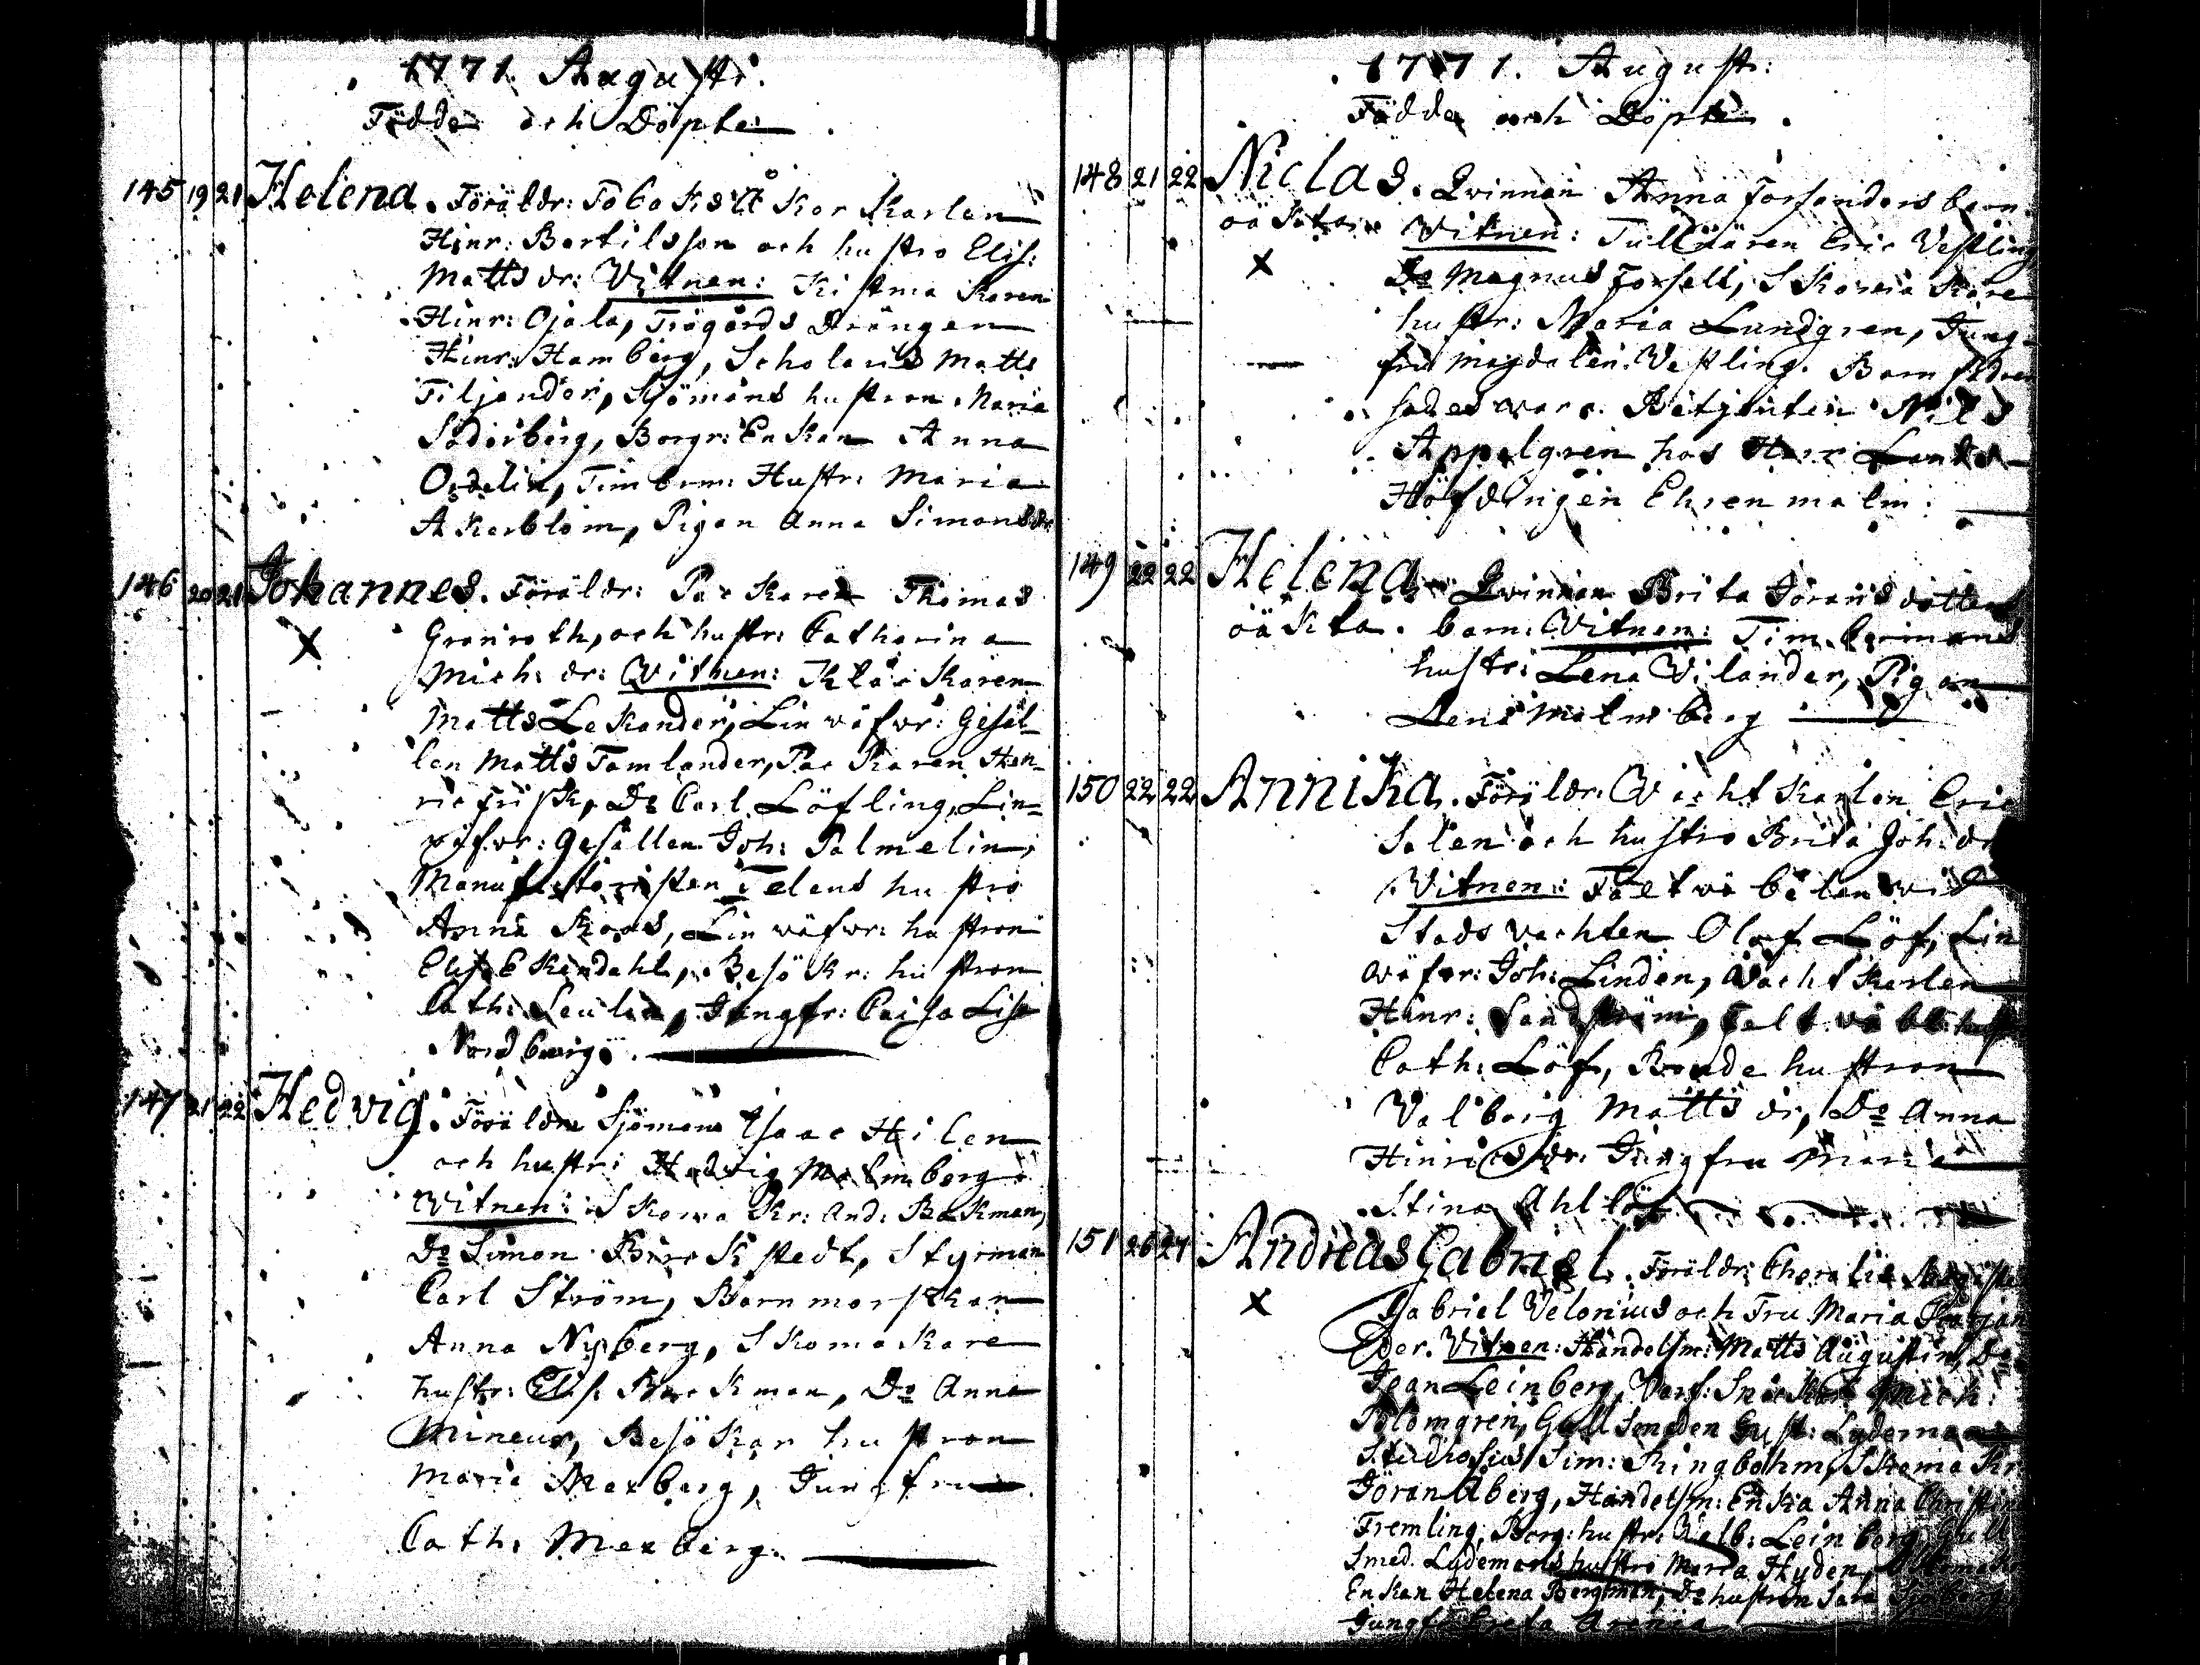 1771 Augusti.
Födde och Döpte
145 19 21 Helena. Föräldr: Tobaks Karlen
Hinr: Bertilsson och hustro Elis:
Matts dr: Vitnen: Kistma Karen
Hinr: Ojala, Trägårds Drängen
Hinr: Hamberg, Scholaris Matts
Tiljander, Sjömans hustron Maria
Söderberg, Borgr: Enkan Anna
Ordelin, Timberm: Hustr: Maria
Akerblom, Pigan Anna Simonsdr
146 20 21 Johannes. Föräldr: Packaren Thomas
X Grönroth, och hustr: Catharina
Mich: dr: Witnen: Klär Karen
Matts Lekander, Linwäfvr: Gesäl-
len Matts Tamlander, Packaren Hen-
ric Frisk, Do Carl Löfling, Lin-
wäfvr: Gesällen Joh: Palmelin,
Manufactoristen Telens hustro
Anna Koos, Linwäfvr: hustron
Elis: Ekendahl, Besökr: hustron
Cath: Jungfr: Caisa Lisa
Nordberg.
147 21 22 Hedvig. Föräldr Sjöman Isaac Hilen
och hustr: Hedvig Malmberg.
Witnen: Skomakr: And: Backman,
Do Simon Birckstedt, Styrman
Carl Ström, Barnmorskan
Anna Nyberg, Skomakare
hustr: Elis: Backman, Do Anna
Mineur, Besökar hustron
Maria Mexberg, Jungfru
Cath: Mexberg.
1771. August:
Födde och Döpte.
148 21 22 Niclas. Qvinnan Anna Forsanders barn
oäkta. Vitnen: Tullnären Eric Vestling
X Do Magnus Forsell, Skomakare
hustr: Maria Lundgren, Jung-
fru Magdalen: Vestling. Barnfadren
sades vara Betjenten Nils
Appelgren hos Herr Lands-
Höfdingen Ehrenmalm:
149 22 22 Helena. Qvinnan Brita Jörans dotters
oäkta. barn: Witnen: Timbermans
hustr: Lena Vilander, Pigan
Lena Malmberg
150 22 22 Annika. Föräldr: Wacht Karlen Eric
Salen och hustro Brita Joh: dr
Vitnen: Fältwäbelen wid
Stads vachten Olof Löf, Lin
wäfvr: Joh: Linden, Wacht Karlen
Hinr: Sandström, Faltwäbl: hustr
Cath: Löf, Bonde hustron
Valborg Matts dr, Do Anna
Hinrics dr: Jungfru Maria
Stina Ahllöf
151 26 27 Andreas Gabriel. Föräldr:
X Gabriel Velonius och Fru Maria
der. Vitnen: Handelsm: Matts Augustin, Do
Jean Leinberg, Mich:
Poldmgren, Gullsmeden Gust: Lydeman
Studiosus Sim: Ringbohm, Skomakr
Jöran Åberg, Handelsm: Enka Anna Christina
Fremling, Borg: hustr: Leinberg Gull
Smed. Lydemans hustro Maria Hyden,
Enkan Helena Bergman, Do hustron Sara
Jungf: Greta Arenia